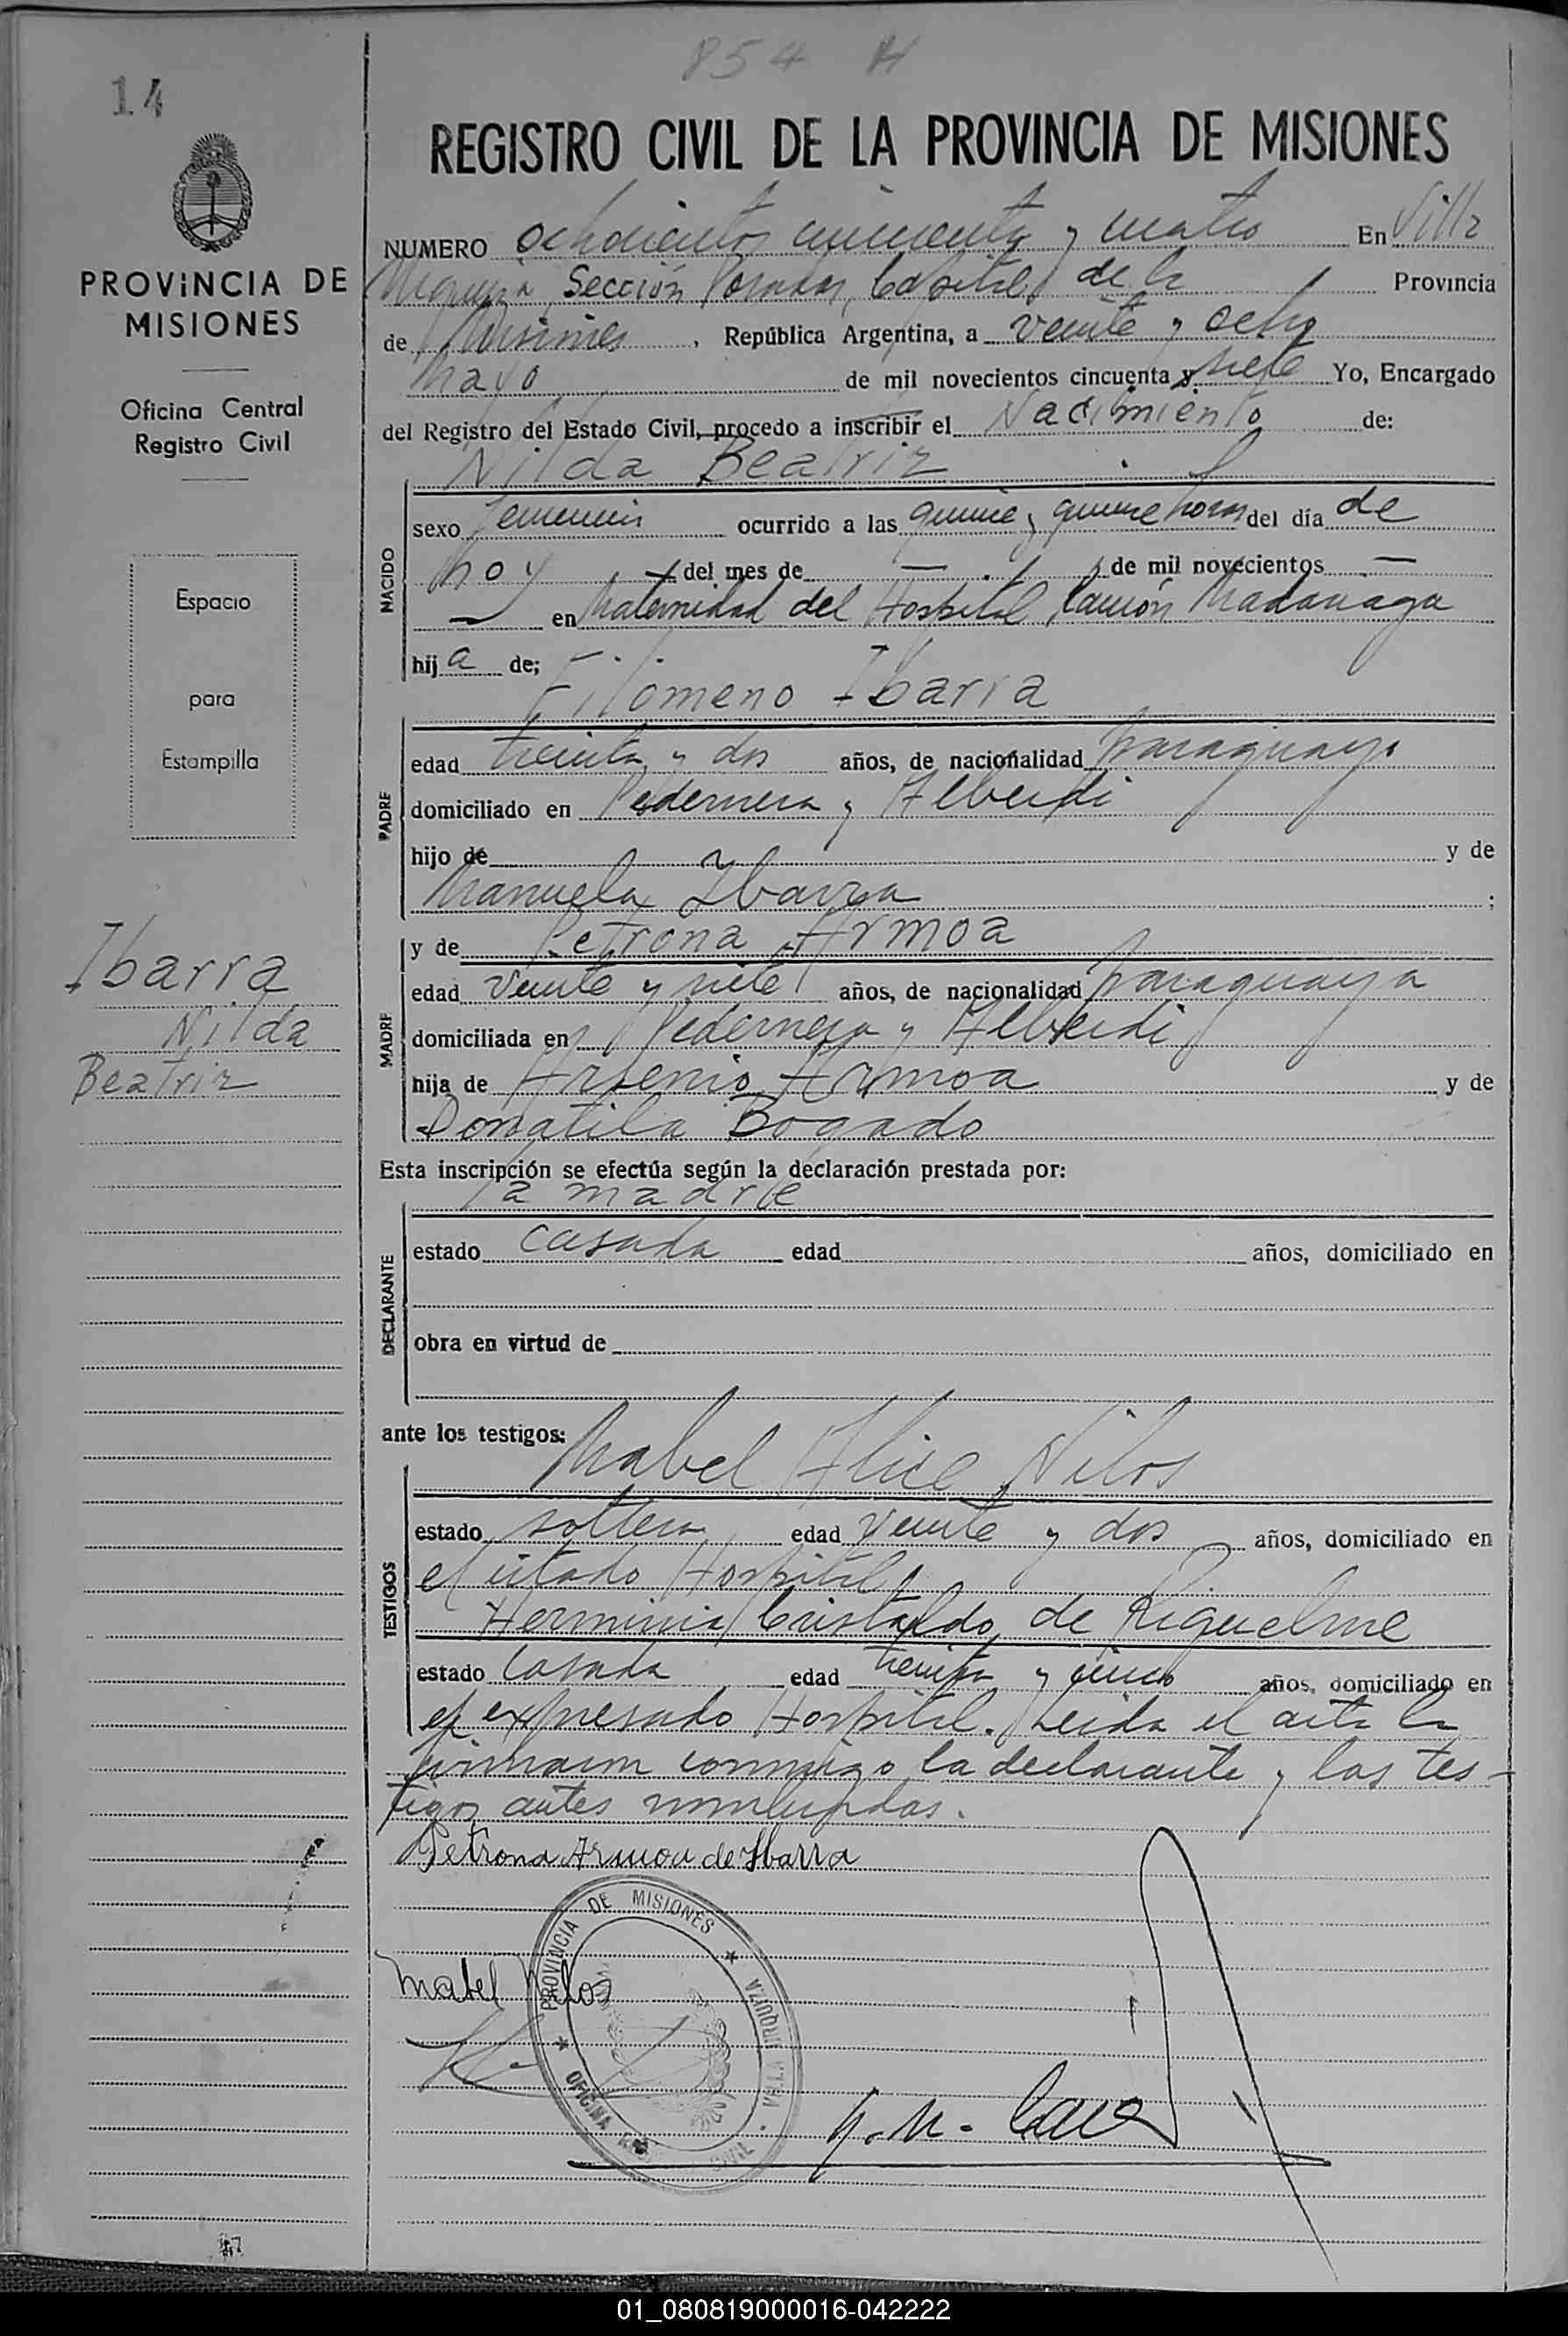 854 H
14
REGISTRO CIVIL DE LA PROVINCIA DE MISIONES
PROVINCIA DE
MISIONES
Oficina Central
Registro Civil
Espacio
para
Estampilla
Ibarra
Nilda
Beatriz
NUMERO ochocientos cincuenta y cuatro En Villa
Urquiza, Sección Posadas, Capital de la Provincia
de Misiones, República Argentina, a veinte y ocho
Mayo de mil novecientos cincuenta y siete Yo, Encargado
del Registro del Estado Civil, procedo a inscribir el Nacimiento de:
Nilda Beatriz
NACIDO
sexo femenino ocurrido a las quince y quince horas del día de
hoy del mes de — de mil novecientos —
— en Maternidad del Hospital Ramón Madariaga
hija de;
Filomeno Ibarra
PADRE
edad treinta y dos años, de nacionalidad paraguaya
domiciliado en Pedernera y Alberdi
hijo de y de
Manuela Ibarra ;
y de Petrona Armoa
MADRE
edad veinte y siete años, de nacionalidad paraguaya
domiciliada en Pedernera y Alberdi
hija de Arsenio Armoa y de
Donatila Bogado
Esta inscripción se efectúa según la declaración prestada por:
la madre
DECLARANTE
estado casada edad años, domiciliado en
obra en virtud de
ante los testigos:
Mabel Alice Nilos
TESTIGOS
estado soltera edad veinte y dos años, domiciliado en
el citado Hospital
Herminia Cristaldo de Riquelme
estado casada edad treinta y cinco años, domiciliado en
el expresado Hospital. Leida el acta la
firmaron conmigo la declarante y los tes-
tigos antes nombrados.
Petrona Armoa de Ibarra
Mabel Nilos
PROVINCIA DE MISIONES ★ VILLA URQUIZA
★ OFICINA CIVIL
01_080819000016-042222